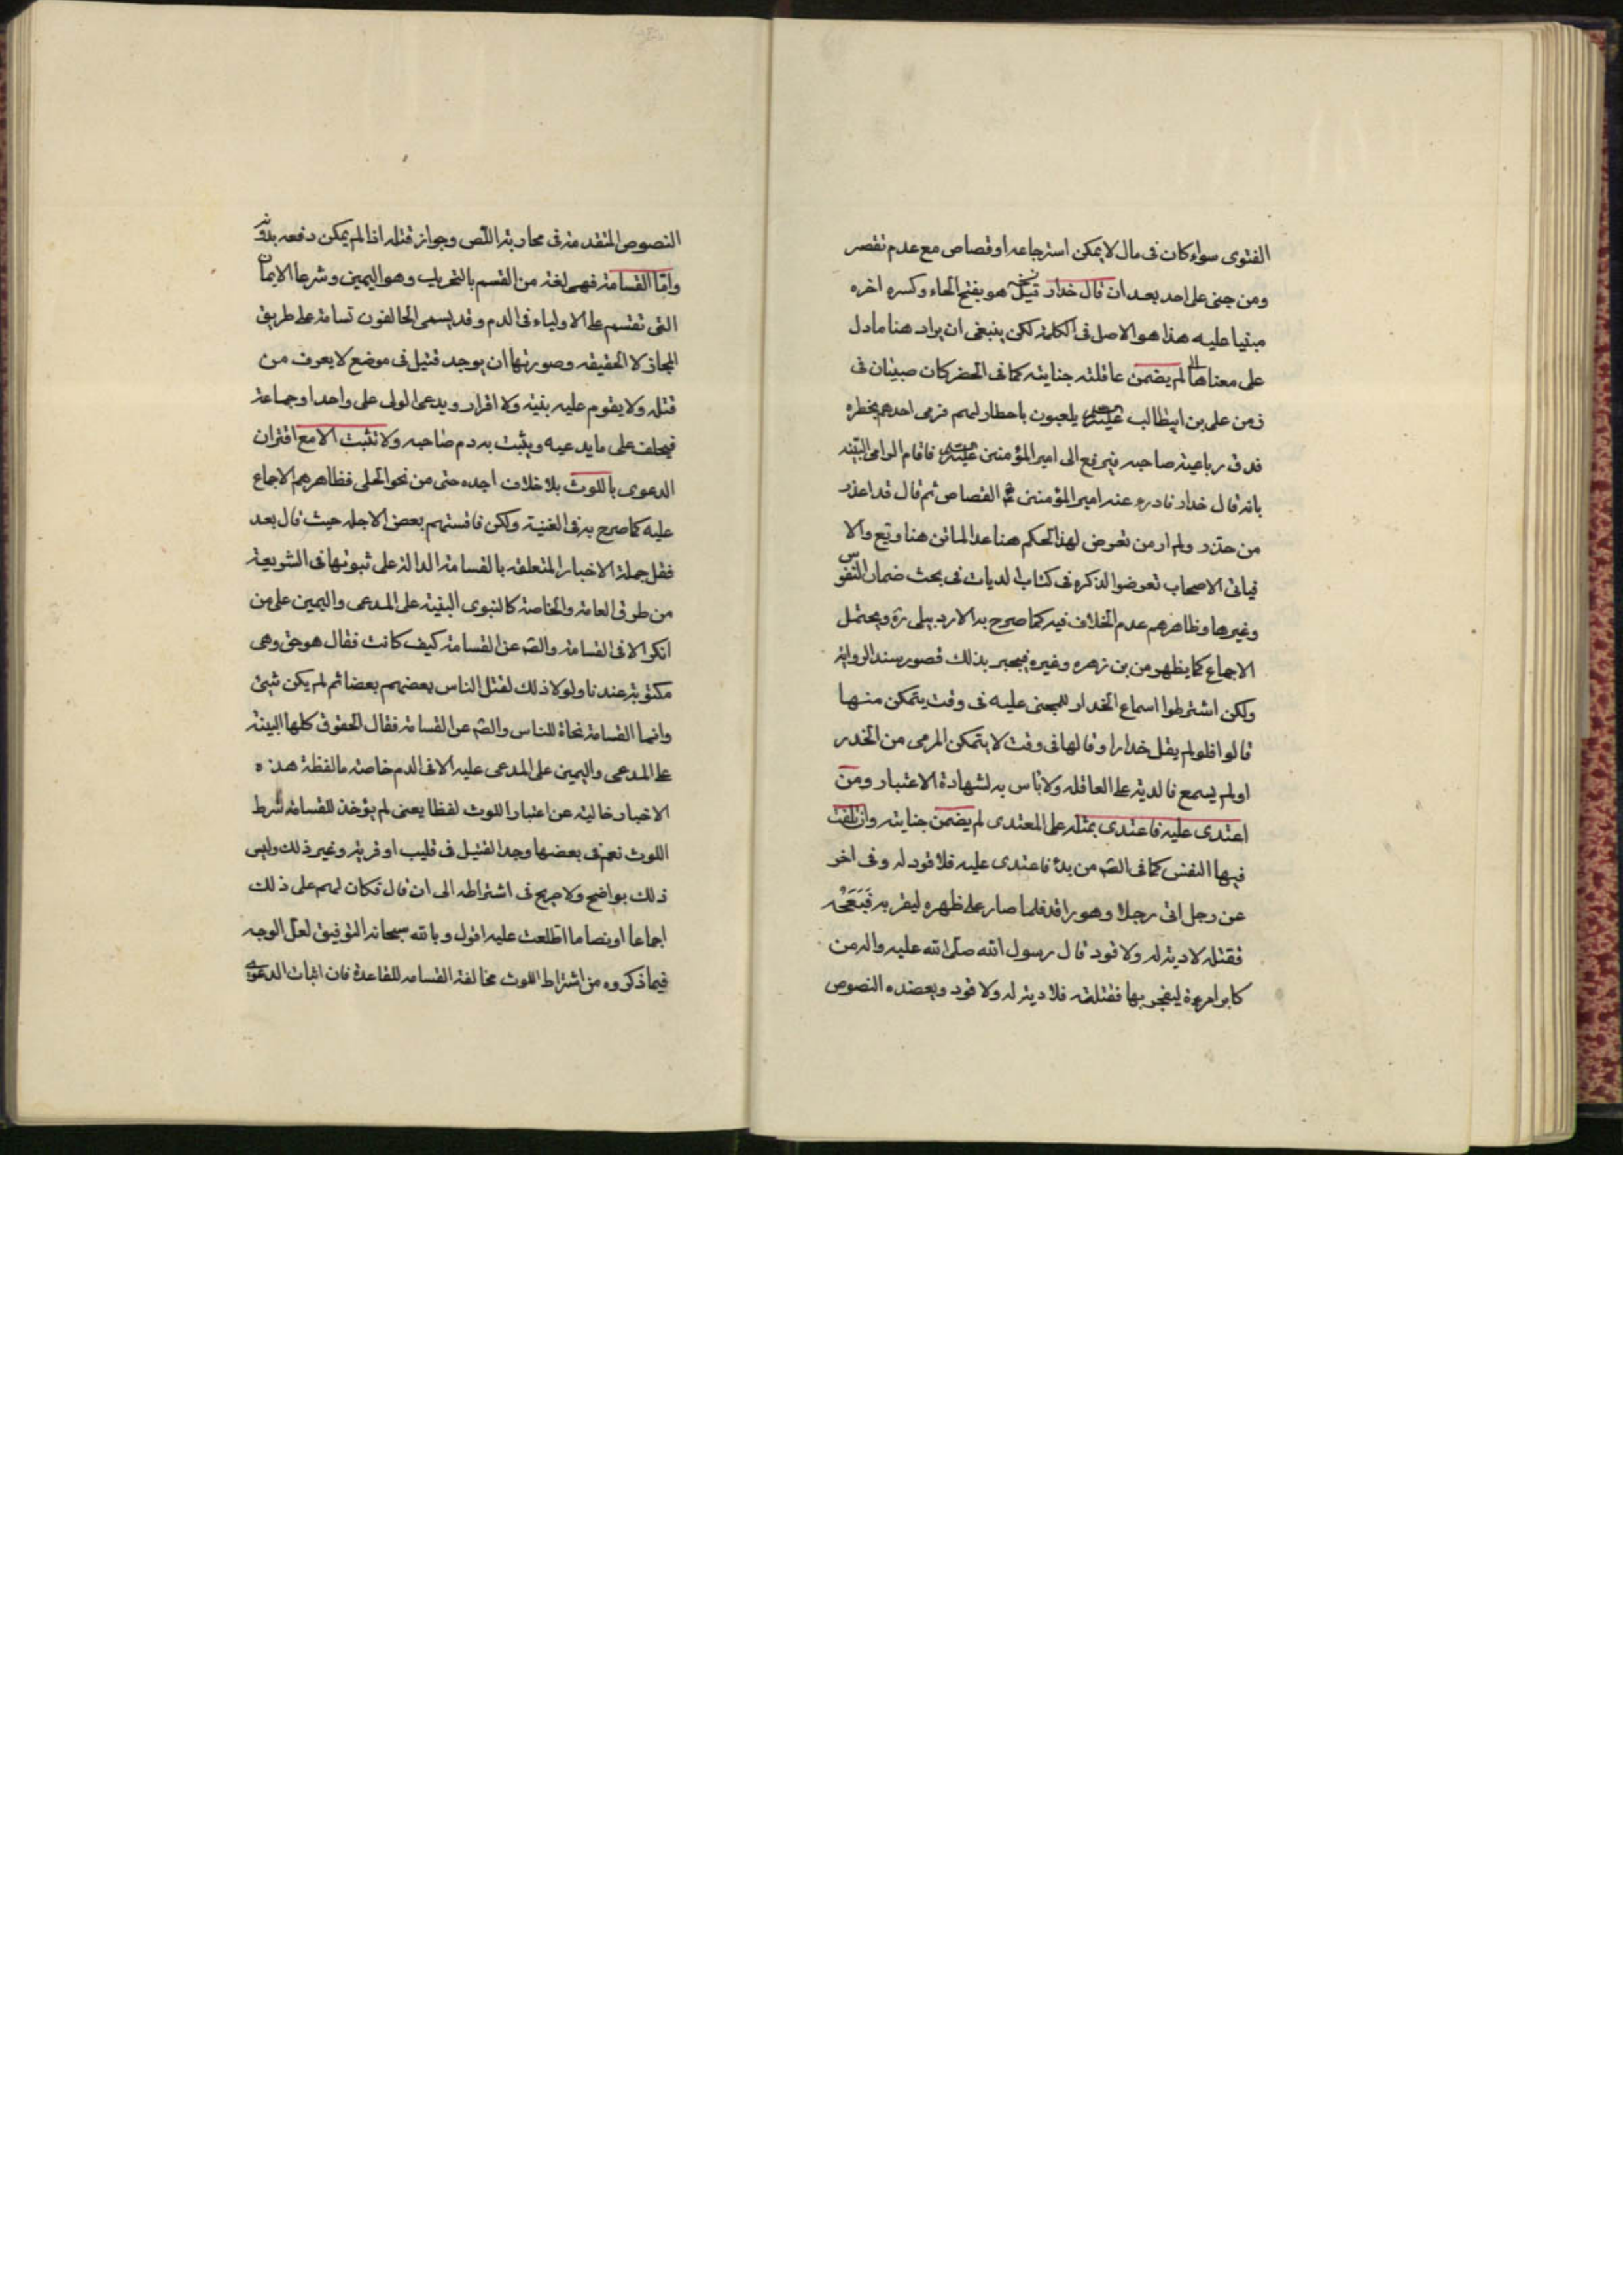 الفتوى سواء كان فى مال لا يمكن استرجاعه او قصاص مع عدم تقصر
ومن جنى على احد بعد ان قال خدار قيل هو بفتح الحاء وكسره اخره
مبنيا عليه هذا هو الاصل فى الكلمة لكن ينبغى ان يراد هنا ما دل
على معناها لم يضمن عاقلته جنايته كما فى الخبر كان صبيان فى
زمن على بن ابيطالب يلعبون باخطار لهم فرمى احدهم بخطره
فدق رباعية صاحبه فيرفع الى امير المؤمنين فاقام الرامى البينه
بانه قال خدار فادرء عنه امير المؤمنين ع القصاص ثم قال قد اعذر
من حذر ولم ار من تعرض لهذا الحكم هنا عدا الماتن هنا وتبع والا
فباقى الاصحاب تعرضوا لذكره فى كتاب الديات فى بحث ضمان النفوس
وغيرها وظاهرهم عدم الخلاف فيه كما صرح به الاردبيلى ره ويحتمل
الاجماع كما يظهر من بن زهره وغيره فيجبر بذلك قصور سند الرواية
ولكن اشترطوا اسماع الخدار للمجنى عليه فى وقت يتمكن منها
قالوا فلو لم يقل خدارا وقالها فى وقت لا يتمكن المرمى من الخدر
او لم يسمع فالدية على العاقله ولا باس به لشهادة الاعتبار ومن
اعتدى عليه فاعتدى بمثله على المعتدى لم يضمن جنايته وان تلفت
فيها النفس كما فى الصّ من بدء فاعتدى عليه فلا قود له وفى اخر
عن رجل اتى رجلا وهو راقد فلما صار على ظهره ليقر به فبعجه
فقتله لا دية له ولا قود قال رسول الله صلى الله عليه واله من
كابر امرءة ليفجر بها فقتلته فلا دية له ولا قود ويعضده النصوص
النصوص المتقدمة فى محاربة اللّص وجواز قتله اذا لم يمكن دفعه بدونه
وامّا القسامة فهى لغة من القسم بالتحريك وهو اليمين وشرعا الايمان
التى تقسم على الاولياء فى الدم وقد يسمى الحالفون قسامة على طريق
المجاز لا الحقيقه وصورتها ان يوجد قتيل فى موضع لا يعرف من
قتله ولا يقوم عليه بنية ولا اقرار ويدعى الولى على واحد او جماعة
فيحلف على ما يدعيه ويثبت به دم صاحبه ولا تثبت الا مع اقتران
الدعوى باللوث بلا خلاف اجده حتى من نحو الحلى فظاهرهم الاجماع
عليه كما صرح به فى الغنية ولكن بعض الاجله حيث قال بعد
فقل جملة الاخبار المتعلقه بالقسامة الدالة على ثبوتها فى الشريعة
من طرق العامة والخاصة كالنبوى البنية على المدعى واليمين على من
انكر الا فى القسامة والصّ عن القسامة كيف كانت فقال هو حق وهى
مكتوبة عندنا ولولا ذلك لقتل الناس بعضهم بعضا ثم لم يكن شيئ
وانما القسامة نجاة للناس والصّ عن القسامة فقال الحقوق كلها البينة
على المدعى واليمين على المدعى عليه الا فى الدم خاصة ما لفظه هذه
الاخبار خالية عن اعتبار اللوث لفظا يعنى لم يؤخذ للقسامة شرط
اللوث نعم فى بعضها وجد القتيل فى قليب او قرية وغير ذلك وليس
ذلك بواضح ولا صريح فى اشتراطه الى ان قال فكان لهم على ذلك
اجماعا او نصا ما اطلعت عليه اقول وبالله سبحانه التوفيق لعل الوجه
فيما ذكروه من اشتراط اللوث مخالفة القسامه للقاعدة فان اثبات الدعوى